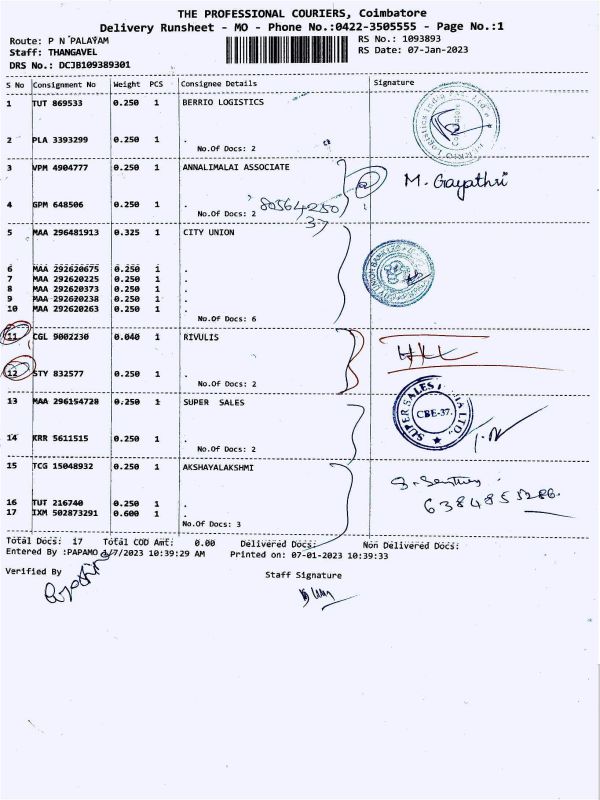 THE PROFESSIONAL COURIERS, Coimbatore
Delivery Runsheet - MO - Phone No.:0422-3505555 - Page No.:1
Route: P N PALAYAM
RS No.: 1093893
Staff: THANGAVEL
RS Date: 07-Jan-2023
DRS No.: DCJB109389301
S No Consignment No Weight PCS Consignee Details Signature
1 TUT 869533 0.250 1 BERRIO LOGISTICS
2 PLA 3393299 0.250 1 .
No.Of Docs: 2
3 VPM 4904777 0.250 1 ANNALIMALAI ASSOCIATE
M. Gayathri
4 GPM 648506 0.250 1 .
8056 4250
37
No.Of Docs: 2
5 MAA 296481913 0.325 1 CITY UNION
6 MAA 292620675 0.250 1 .
7 MAA 292620225 0.250 1 .
8 MAA 292620373 0.250 1 .
9 MAA 292620238 0.250 1 .
10 MAA 292620263 0.250 1 .
No.Of Docs: 6
11 CGL 9002230 0.040 1 RIVULIS
12 STY 832577 0.250 1 .
No.Of Docs: 2
13 MAA 296154728 0.250 1 SUPER SALES
SUPER SALES LTD.
CBE-37.
14 KRR 5611515 0.250 1 .
No.Of Docs: 2
15 TCG 15048932 0.250 1 AKSHAYALAKSHMI
16 TUT 216740 0.250 1 .
17 IXM 502873291 0.600 1 .
No.Of Docs: 3
Total Docs: 17 Total COD Amt: 0.00 Delivered Docs: Non Delivered Docs:
Entered By :PAPAMO 1/7/2023 10:39:29 AM Printed on: 07-01-2023 10:39:33
Verified By
Staff Signature